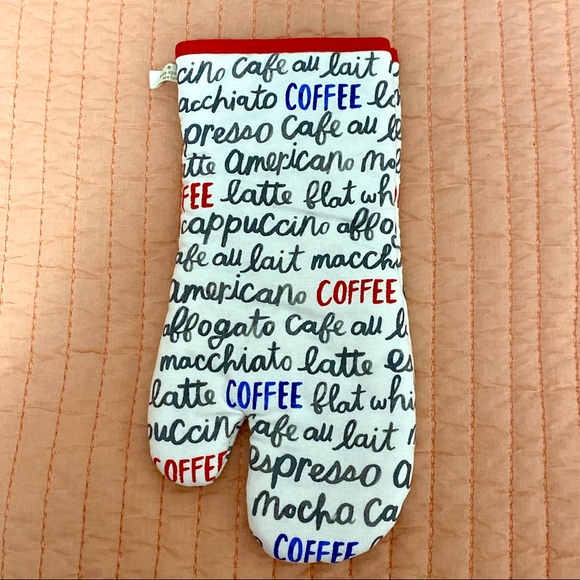 cino cafe au lait
acchiato COFFEE
presso cafe au l
tte americano mo
FEE latte flat wh
cappuccino affog
afe au lait macch
americano COFFEE
affogato cafe au l
macchiato latte es
latte COFFEE flat whi
puccin cafe au lait
COFFEE espresso a
mocha ca
COFFEE